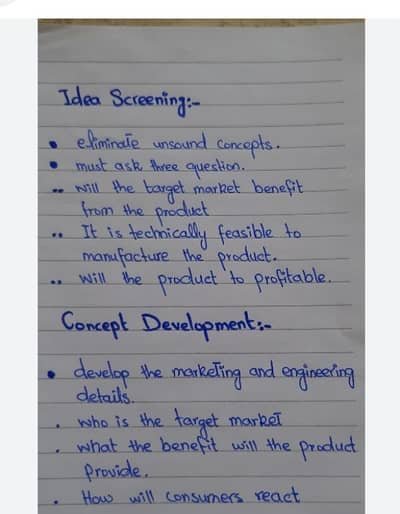 Idea Screening:-
• eliminate unsound concepts.
• must ask three question.
•• will the target market benefit
from the product
•• It is technically feasible to
manufacture the product.
•• will the product to profitable.
Concept Development:-
• develop the marketing and engineering
details.
. who is the target market
. what the benefit will the product
provide.
. How will consumers react